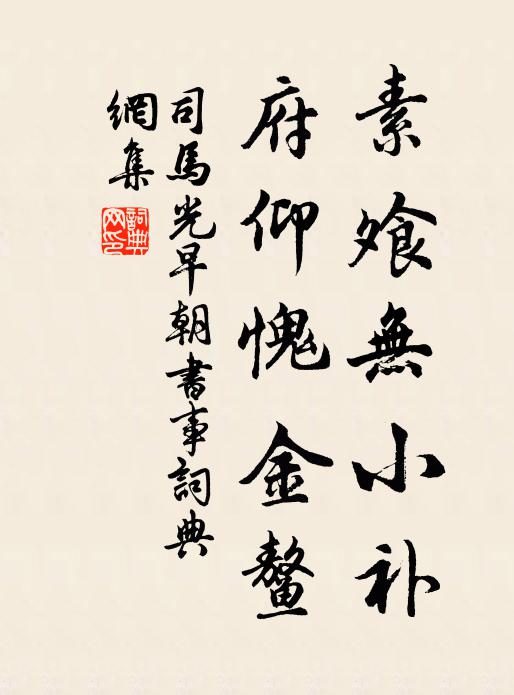 素飧無小补
府仰愧金鳌
司馬光早朝書事詞典
網集
詞典
网印